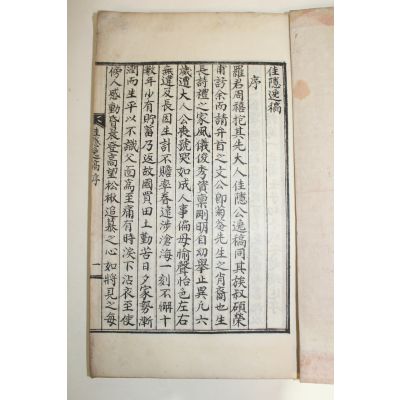 佳隱逸稿
序
羅君周禧抱其先大人佳隱公逸稿同其族叔碩榮
甫訪余而請弁首之文公卽菊菴先生之肖裔也生
長詩禮之家風儀俊秀資稟剛明自幼擧止異凡六
歲遭大人公喪號哭如成人事偏母愉聲怡色左右
無違及長因生計不贍率眷遠涉滄海一刻不懈十
數年少有貯蓄乃返故國買田土勤苦日夕家勢漸
潤而生平以不識父面爲至痛有時淚下沾衣至使
傍人感動昏晨登高望松楸追慕之心如將見之每
佳隱逸稿序
一